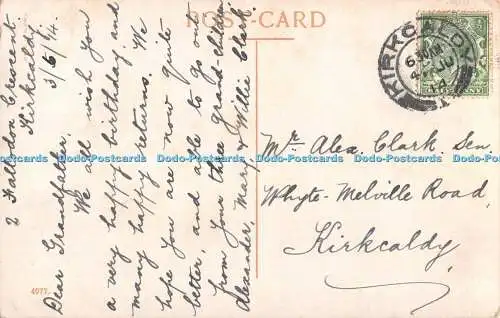 POST-CARD
2 Falladon Crescent.
Kirkcaldy
3/6/14.
Dear Grandfather.
We all wish you
a very happy birthday and
many happy returns. We
hope you are now quite
better, and able to go out
from your three grand-children
Alexander, Mary & Willie Clark.
KIRKCALDY
Mr Alex. Clark. Sen.
Whyte-Melville Road,
Kirkcaldy.
4977.
Dodo-Postcards Dodo-Postcards Dodo-Postcards Dodo-Postcards Dodo-Postcards